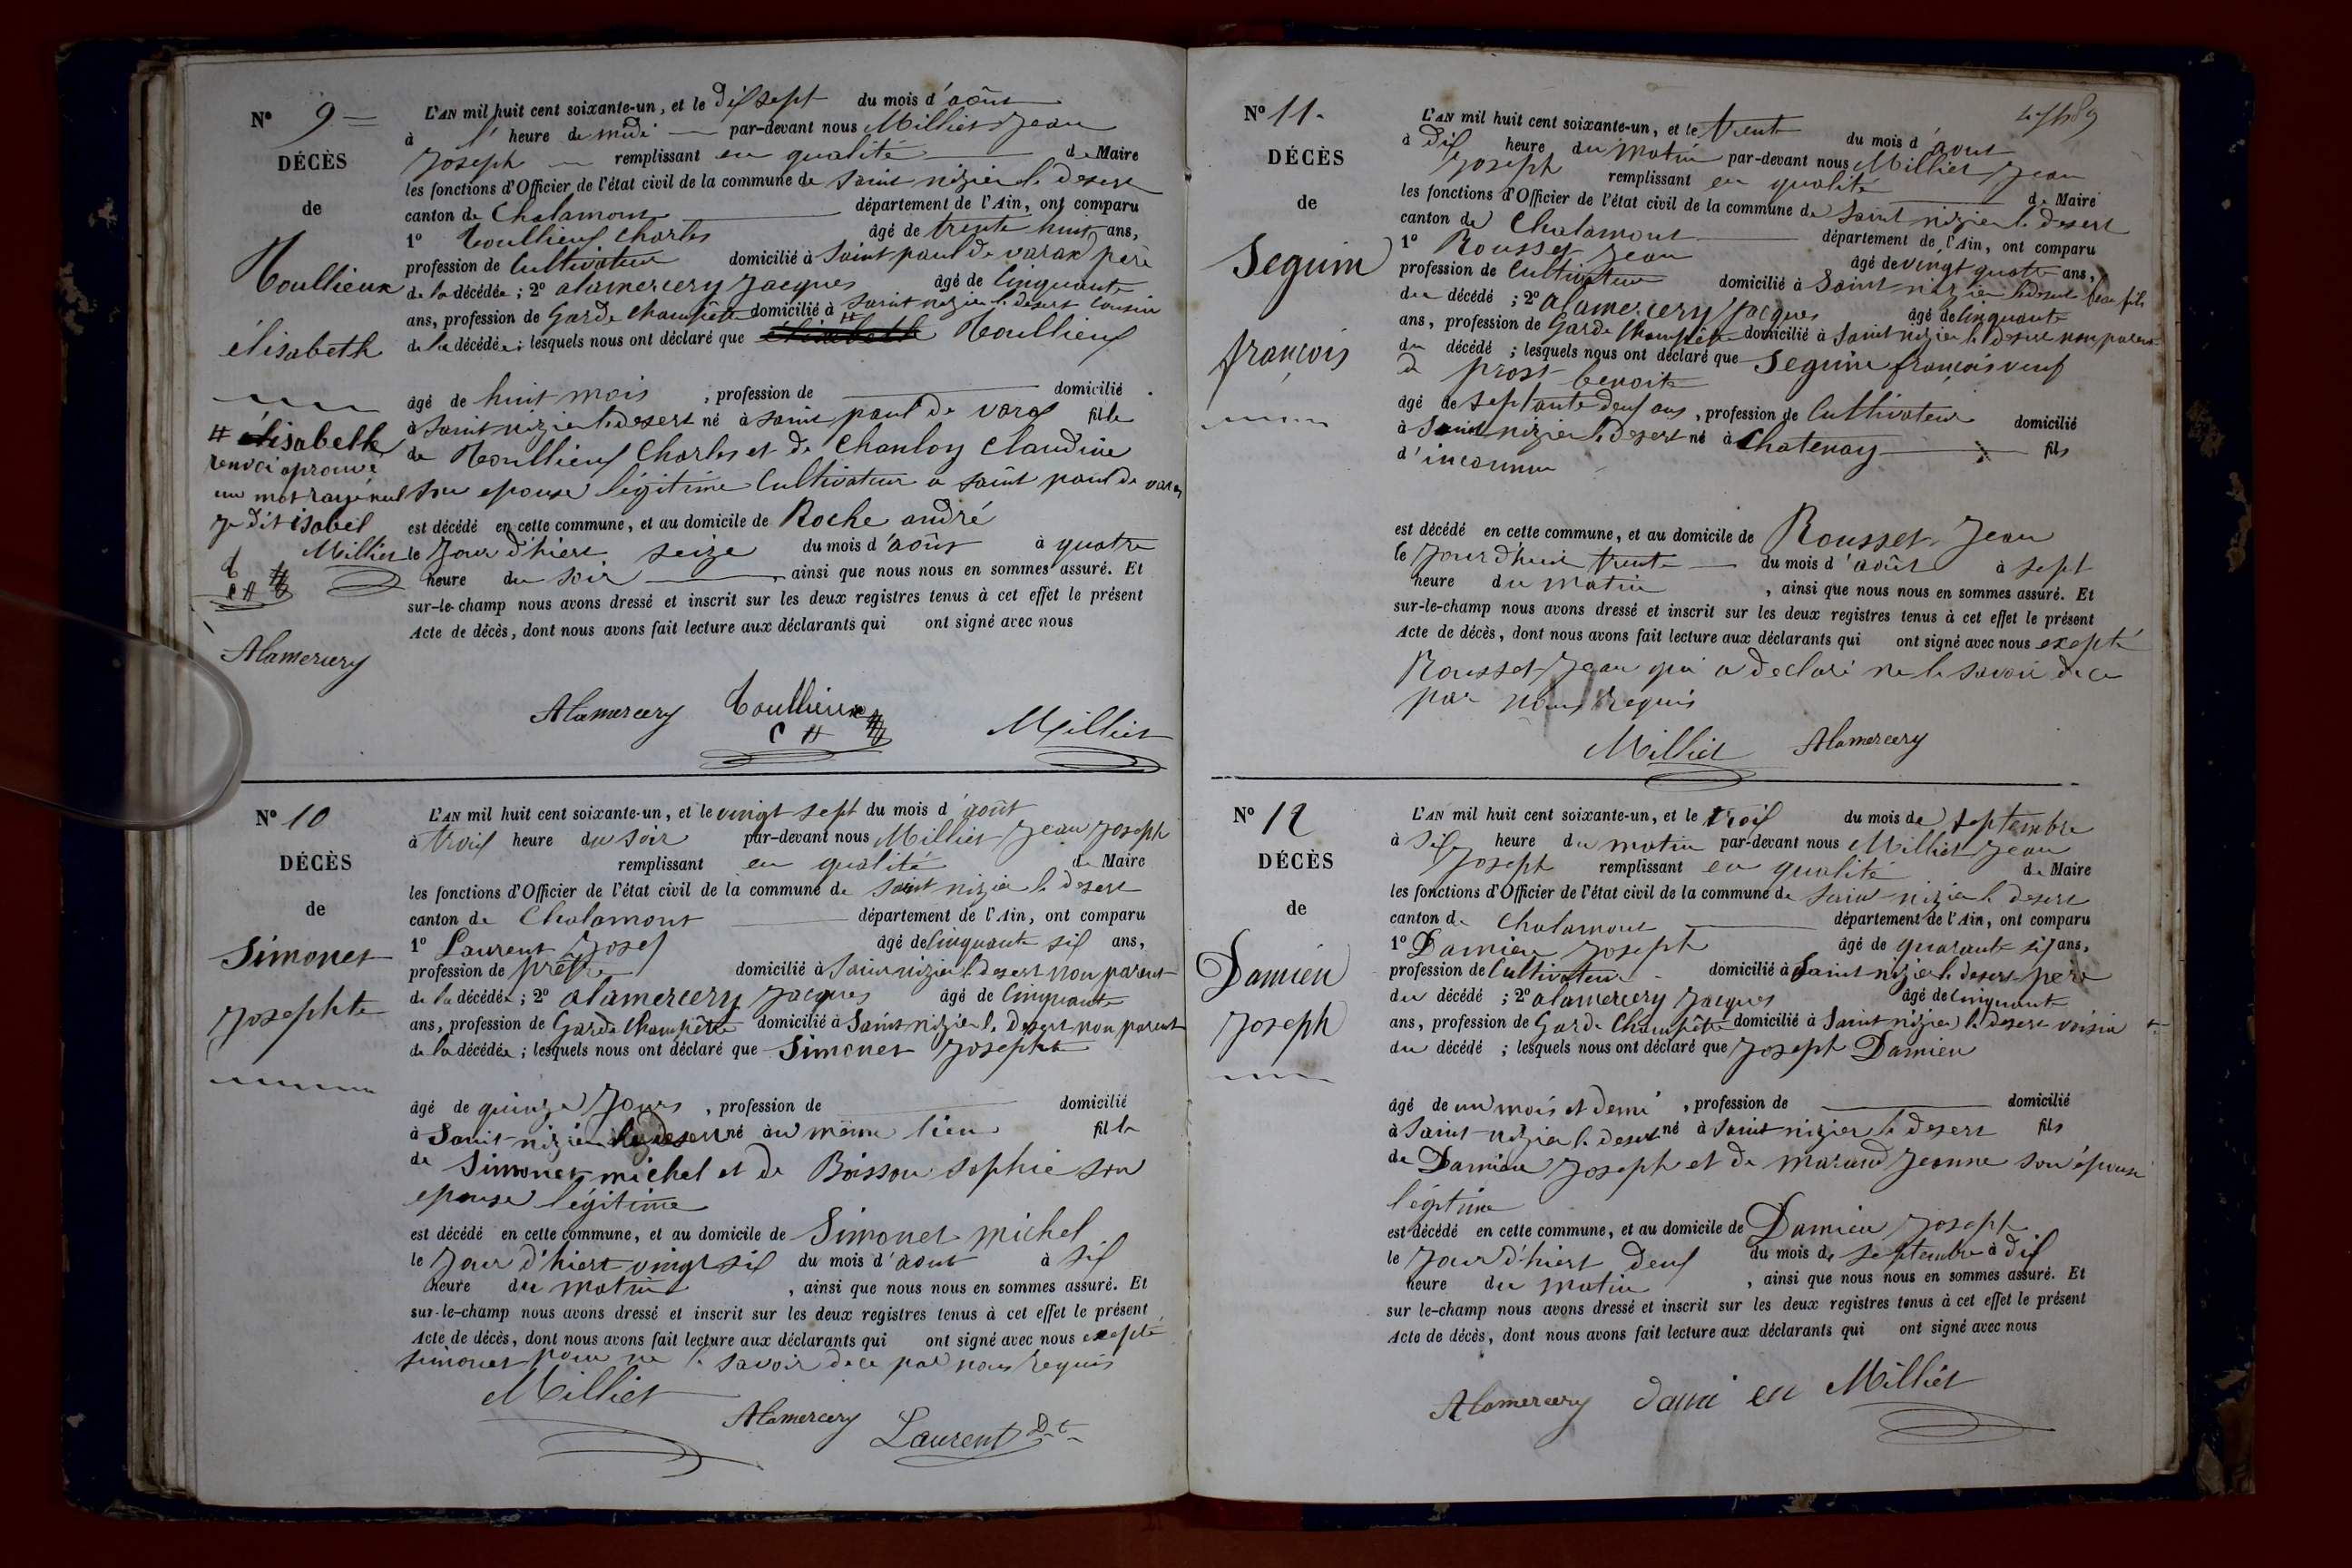 N° 9
DÉCÈS
de
Toullieux
élisabeth
# élisabeth
renvoi aprouvé
un mot rayé nul
je dit isabel
Milliet
T
C #
Alamercery
L'AN mil huit cent soixante-un, et le dix sept du mois d'août
à l' heure de midi par-devant nous Milliet Jean
Joseph remplissant en qualité de Maire
les fonctions d'Officier de l'état civil de la commune de Saint nizier le desert
canton de Chalamont département de l'Ain, ont comparu
1° Toullieux Charles âgé de trente huit ans,
profession de Cultivateur domicilié à Saint paul de varax père
de la décédée; 2° alamercery Jacques âgé de Cinquante
ans, profession de Garde Champêtre domicilié à Saint nizier le desert Cousin
de la décédée; lesquels nous ont déclaré que # élisabeth Toullieux
âgé de huit mois, profession de domicilié
à Saint nizier le desert né à Saint paul de varax fille
de Toullieux Charles et de Chanloy Claudine
son epouse légitime Cultivateur a saint paul de varax
est décédé en cette commune, et au domicile de Roche andré
le Jour d'hiert seize du mois d'août à quatre
heure du soir, ainsi que nous nous en sommes assuré. Et
sur-le-champ nous avons dressé et inscrit sur les deux registres tenus à cet effet le présent
Acte de décès, dont nous avons fait lecture aux déclarants qui ont signé avec nous
Alamercery Toullieux Milliet
C #
N° 10
DÉCÈS
de
Simonet
Josephte
L'AN mil huit cent soixante-un, et le vingt sept du mois d'août
à trois heure du soir par-devant nous Milliet Jean Joseph
remplissant en qualité de Maire
les fonctions d'Officier de l'état civil de la commune de saint nizier le desert
canton de Chalamont département de l'Ain, ont comparu
1° Laurent Josef âgé de Cinquante six ans,
profession de prêtre domicilié à Saint nizier le desert non parent
de la décédée; 2° alamercery Jacques âgé de Cinquante
ans, profession de Garde Champêtre domicilié à Saint nizier le desert non parent
de la décédée; lesquels nous ont déclaré que Simonet Josephte
âgé de quinze Jours, profession de domicilié
à Saint nizier le desert né au même lieu fille
de Simonet michel et de Boisson Sophie son
epouse légitime
est décédé en cette commune, et au domicile de Simonet michel
le Jour d'hiert vingt six du mois d'août à six
heure du matin, ainsi que nous nous en sommes assuré. Et
sur-le-champ nous avons dressé et inscrit sur les deux registres tenus à cet effet le présent
Acte de décès, dont nous avons fait lecture aux déclarants qui ont signé avec nous exepté
simonet pour ne le savoir de ce par nous requis
Milliet
Alamercery Laurent
N° 11.
DÉCÈS
de
Seguin
françois
L'AN mil huit cent soixante-un, et le trente du mois d'aout
à dix heure du matin par-devant nous Milliet Jean
Joseph remplissant en qualité de Maire
les fonctions d'Officier de l'état civil de la commune de Saint nizier le desert
canton de Chalamont département de l'Ain, ont comparu
1° Rousset Jean âgé de vingt quatre ans,
profession de Cultivateur domicilié à Saint nizier le desert beau fils
du décédé; 2° alamercery Jacques âgé de Cinquante
ans, profession de Garde Champêtre domicilié à Saint nizier le desert non parent
du décédé; lesquels nous ont déclaré que Seguin françois veuf
de prost benoite
âgé de septante deux ans, profession de Cultivateur domicilié
à Saint nizier le desert né à Chatenay fils
d'inconnu
est décédé en cette commune, et au domicile de Rousset Jean
le Jour d'hui trente du mois d'août à sept
heure du matin, ainsi que nous nous en sommes assuré. Et
sur-le-champ nous avons dressé et inscrit sur les deux registres tenus à cet effet le présent
Acte de décès, dont nous avons fait lecture aux déclarants qui ont signé avec nous exepté
Rousset Jean qui a declaré ne le savoir de ce
par nous requis
Milliet Alamercery
N° 12
DÉCÈS
de
Damien
Joseph
L'AN mil huit cent soixante-un, et le trois du mois de septembre
à six heure du matin par-devant nous Milliet Jean
Joseph remplissant en qualité de Maire
les fonctions d'Officier de l'état civil de la commune de saint nizier le desert
canton de Chalamont département de l'Ain, ont comparu
1° Damien Joseph âgé de quarante six ans,
profession de Cultivateur domicilié à Saint nizier le desert père
du décédé; 2° alamercery Jacques âgé de Cinquante
ans, profession de Garde Champêtre domicilié à Saint nizier le desert voisin
du décédé; lesquels nous ont déclaré que Joseph Damien
âgé de un mois et demi, profession de domicilié
à Saint nizier le desert né à Saint nizier le desert fils
de Damien Joseph et de marand Jeanne son épouse
légitime
est décédé en cette commune, et au domicile de Damien Joseph
le Jour d'hiert deux du mois de septembre à dix
heure du matin, ainsi que nous nous en sommes assuré. Et
sur le-champ nous avons dressé et inscrit sur les deux registres tenus à cet effet le présent
Acte de décès, dont nous avons fait lecture aux déclarants qui ont signé avec nous
Alamercery dami en Milliet